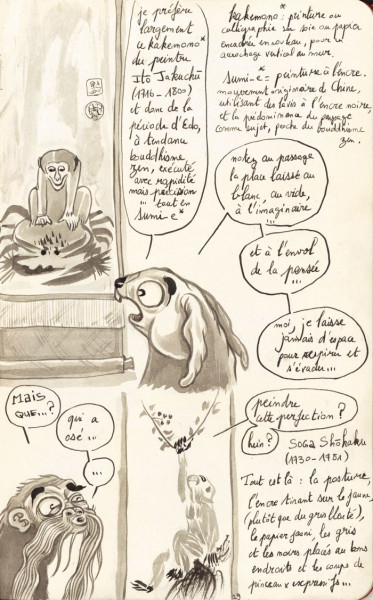 je préfère
largement
ce kakemono*
du peintre
Itō Jakuchū
(1716 - 1800)
et donc de la
période d'Edo,
à tendance
bouddhisme
zen, exécuté
avec rapidité
mais précision
... tout en
Sumi-e*
kakemono* : peinture ou
calligraphie sur soie ou papier
encadrée en rouleau, pour un
accrochage vertical au mur.
Sumi-e* = peinture à l'encre.
mouvement originaire de Chine,
utilisant des lavis à l'encre noire,
et la prédominance du paysage
comme sujet, proche du bouddhisme
zen.
notez au passage
la place laissée au
blanc, au vide,
à l'imaginaire
...
et à l'envol
de la pensée
...
moi, je laisse
jamais d'espace
pour respirer et
s'évader...
Mais
que...?
qui a
osé...
...
peindre
cette perfection ?
hein ?
Soga Shōhaku
(1730 - 1781)
Tout est là : la posture,
l'encre tirant sur le jaune,
(plutôt que du gris llaité),
le papier jauni, les gris
et les noirs placés au bons
endroits et les coups de
pinceaux expressifs...